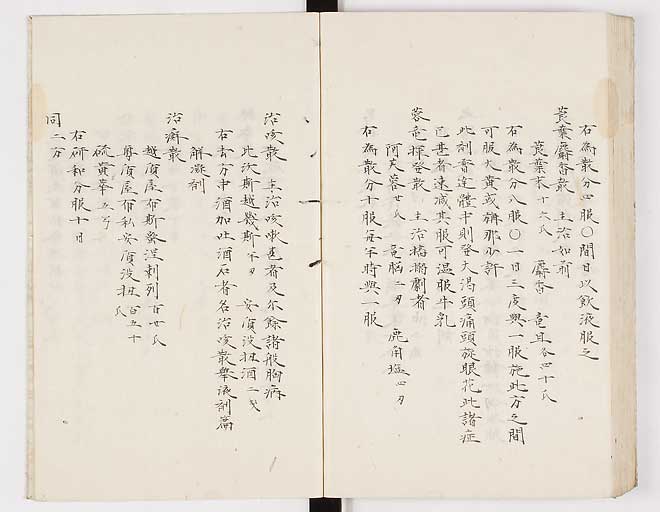 右為散分四服〇間日以飲液服之
莨菪麝香散 主治如前
莨菪末十六氏 麝香 竜且各四十氏
右為散分八服〇一日三度與一服施此方之間
可服大黃或獮那少許
此剤奮達體中則發大渇頭痛頭旋眼花此諸症
已甚者速减其服可温服牛乳
蓉竜揮發散 主治搐搦劇者
阿芙蓉廿氏 竜脳二刄 鹿角塩四刄
右為散分十服每午時與一服
治咳散 主治咳嗽甚者及尓餘諸般胸病
比次斯越幾斯 安質没扭酒二
右去方中酒加吐酒石者名治咳散舉液剤篇
解凝剤
治癖散
越質屋布斯 涅刺列百廿氏
尊質屋布私安質没扭百五十氏
硫黄華五
右研和分服十日
同二方